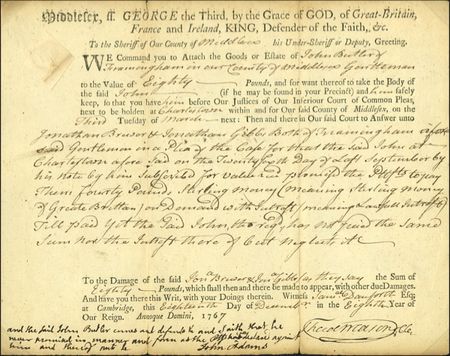 Middlesex, ss. GEORGE the Third, by the Grace of GOD, of Great-Britain,
France and Ireland, KING, Defender of the Faith, &c.
To the Sheriff of Our County of Middlesex his Under-Sheriff or Deputy, Greeting.
WE Command you to Attach the Goods or Estate of John Butler of
Framingham in our County of Middlesex Gentleman
to the Value of Eighty Pounds, and for want thereof to take the Body of
the said John (if he may be found in your Precinct) and him safely
keep, so that you have him before Our Justices of Our Inferiour Court of Common Pleas,
next to be holden at Charlestown within and for Our said County of Middlesex, on
the Third Tuesday of March next: Then and there in Our said Court to Answer unto
Jonathan Brewer & Jonathan Gibbs Both of Framingham afore
said Gentlemen in a Plea of the Case for that the said John at
Charlestown afore said on the Day of Last September by
his note by him Subscribed for value recd promised the Pltffs to pay
Them fourty Pounds sterling money (meaning sterling money
of Greate Brittan) on Demand with Interest (meaning Lawfull Interest)
Till paid Yet the said John, tho reqd, has not paid the same
Sum nor the Interest there of but Neglects it
To the Damage of the said Jon. Brewer & Jona Gibbs as they say the Sum of
Eighty Pounds, which shall then and there be made to appear, with other due Damages.
And have you there this Writ, with your Doings therein. Witness Saml Danforth Esq;
at Cambridge, this Eighteenth Day of December in the Eighth Year of
Our Reign. Annoque Domini, 1767
and the said John Butler comes and defends and saith that he
never promised in manner and form as the Plaintiffs declare against
him and thereof puts he
John Adams